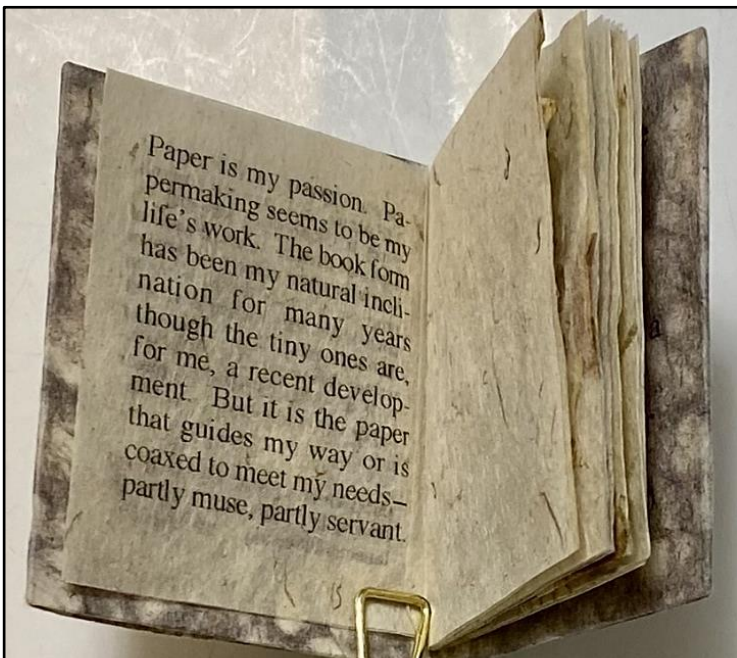 Paper is my passion. Pa-
permaking seems to be my
life's work. The book form
has been my natural incli-
nation for many years
though the tiny ones are,
for me, a recent develop-
ment. But it is the paper
that guides my way or is
coaxed to meet my needs–
partly muse, partly servant.